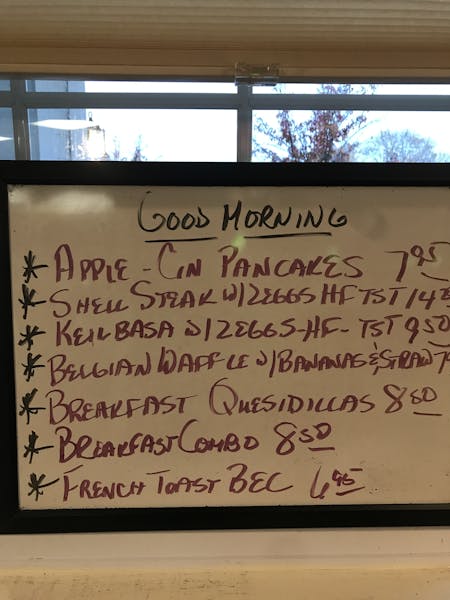 GOOD MORNING
* APPLE - CIN PANCAKES 7 95
* SHELL STEAK W/2EGGS HF TST 14
* KEILBASA W/2EGGS-HF- TST 9 50
* BELGIAN WAFFLE W/BANANAS & STRAW 7
* BREAKFAST QUESIDILLAS 8 50
* BREAKFAST COMBO 8 50
* FRENCH TOAST BEC 6 95